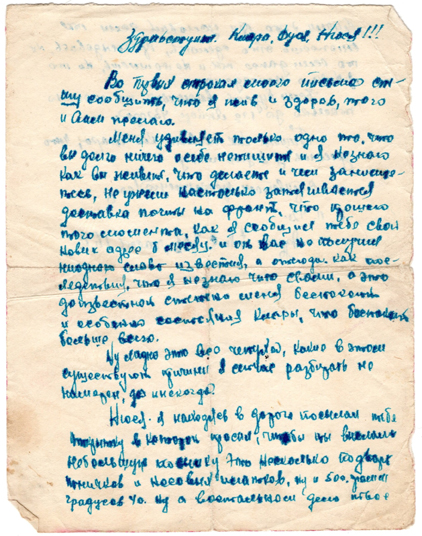 Здравствуйте. Клара, Дуся, Нюся!!!
Во первых строках моего письма спе-
шу сообщить, что я жив и здоров, того
и Вам желаю.
Меня удивляет только одно то, что
вы долго ничего о себе непишите и я незнаю
как вы живете, что делаете и чем занимае-
тесь, неужели настолько затягивается
доставка почты на фронт, что прошло
того момента, как я сообщил тебе свой
новый адрес месяц и от вас не получил
ниодного слова известия, а отсюда как пос-
ледствия, что я незнаю что с вами, а это
до известной степени меня беспокоит
и особенно состояния Клары, что беспокоит
больше всего.
Ну ладно это всё чепуха, какие в этом
существуют причины я сейчас разбирать не
намерен, да и некогда.
Нюся. я находясь в дороге посылал тебе
открытку в которой просил, чтобы ты выслала
небольшую посылку это несколько подворо
тничков и носовых платков, ну и 500. грамм
градусов 40. ну а востальном дело твое